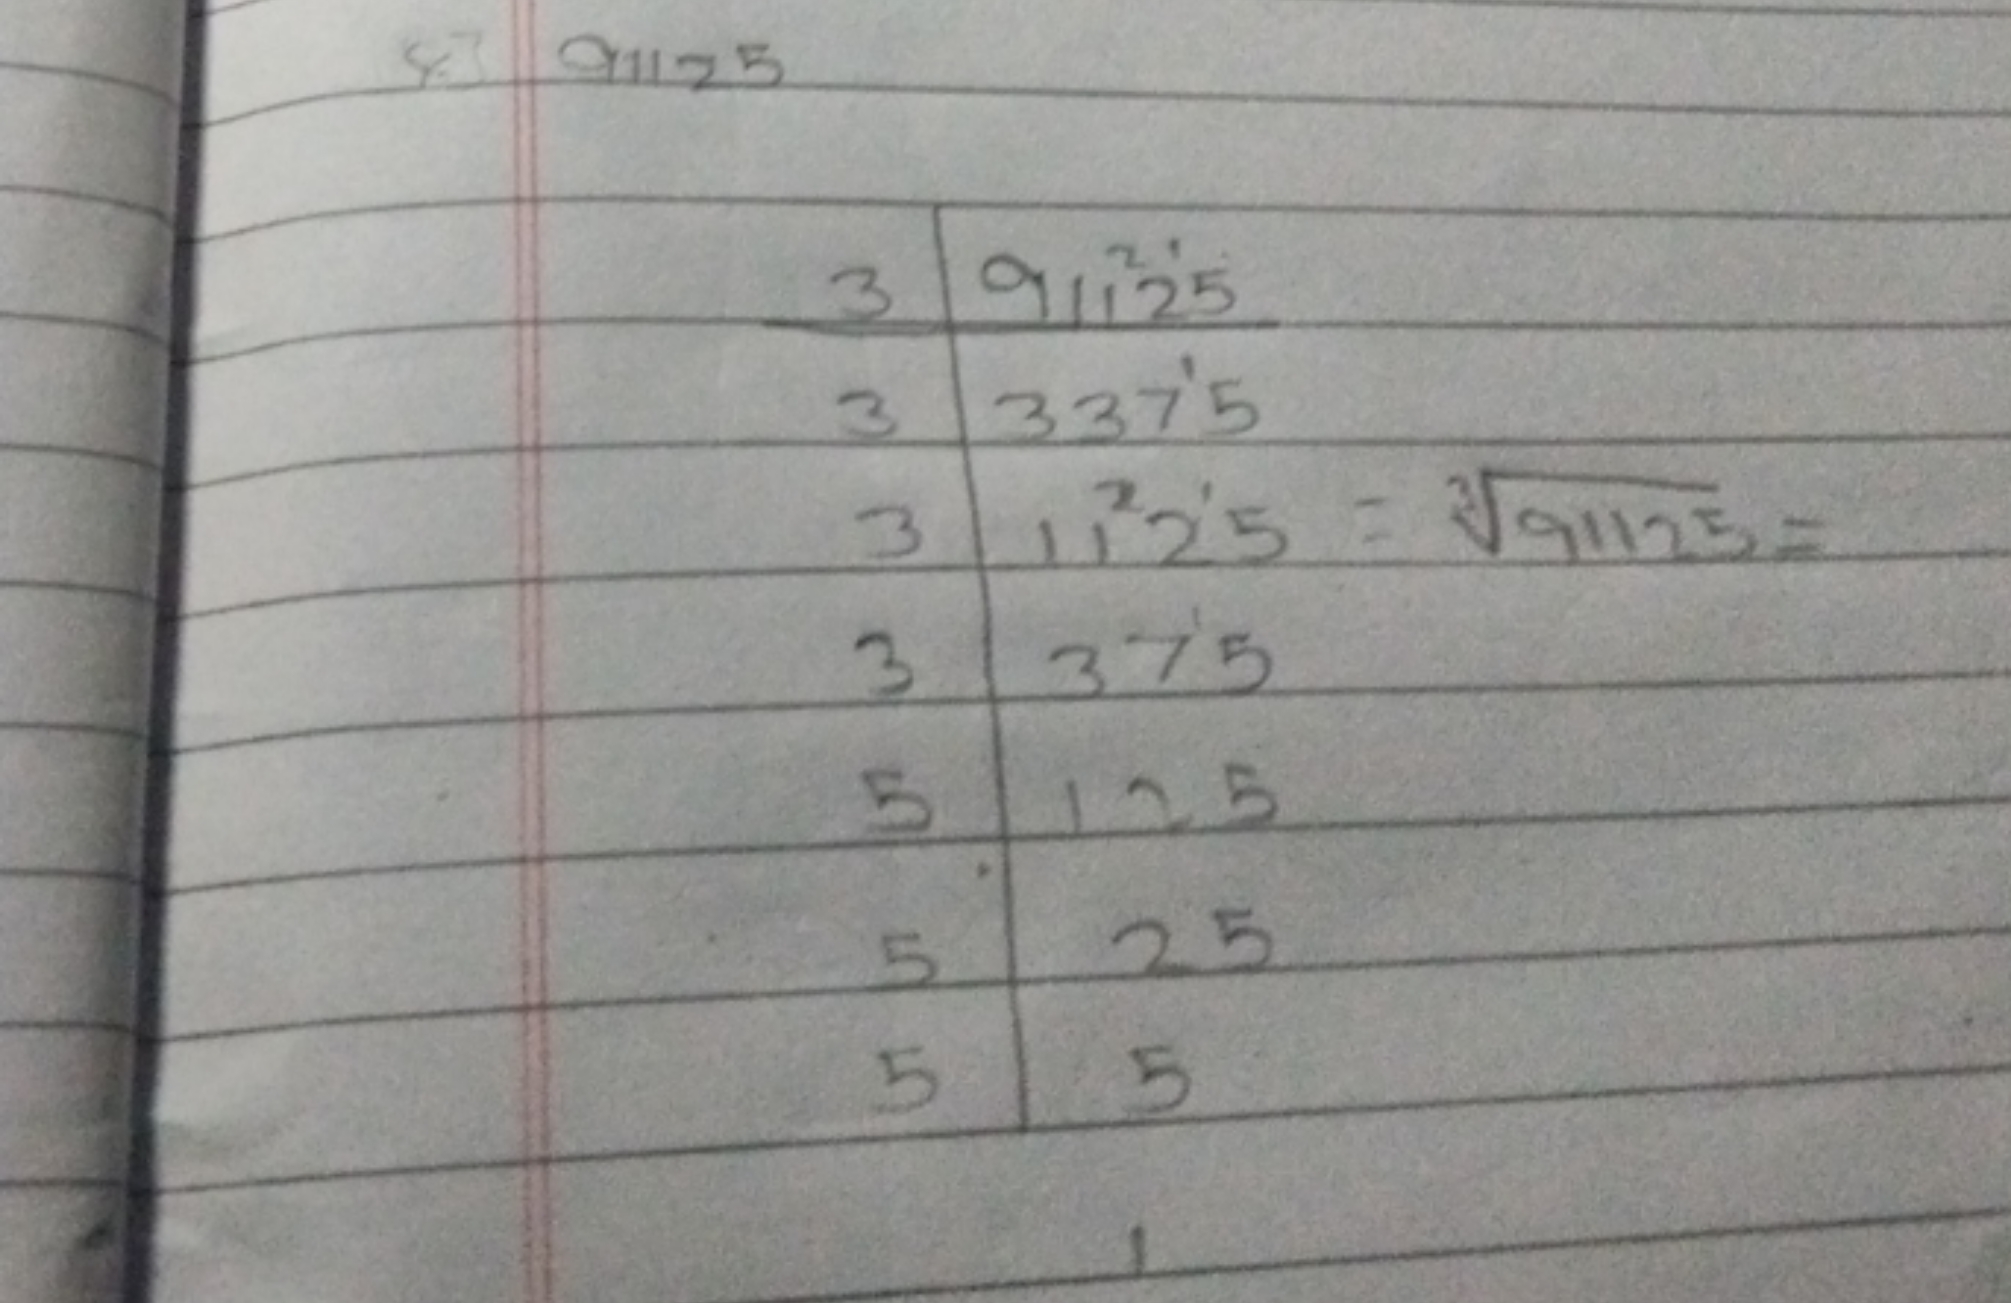 91125
3 | 91125
3 | 3375
3 | 1125 = ∛91125 =
3 | 375
5 | 125
5 | 25
5 | 5
1